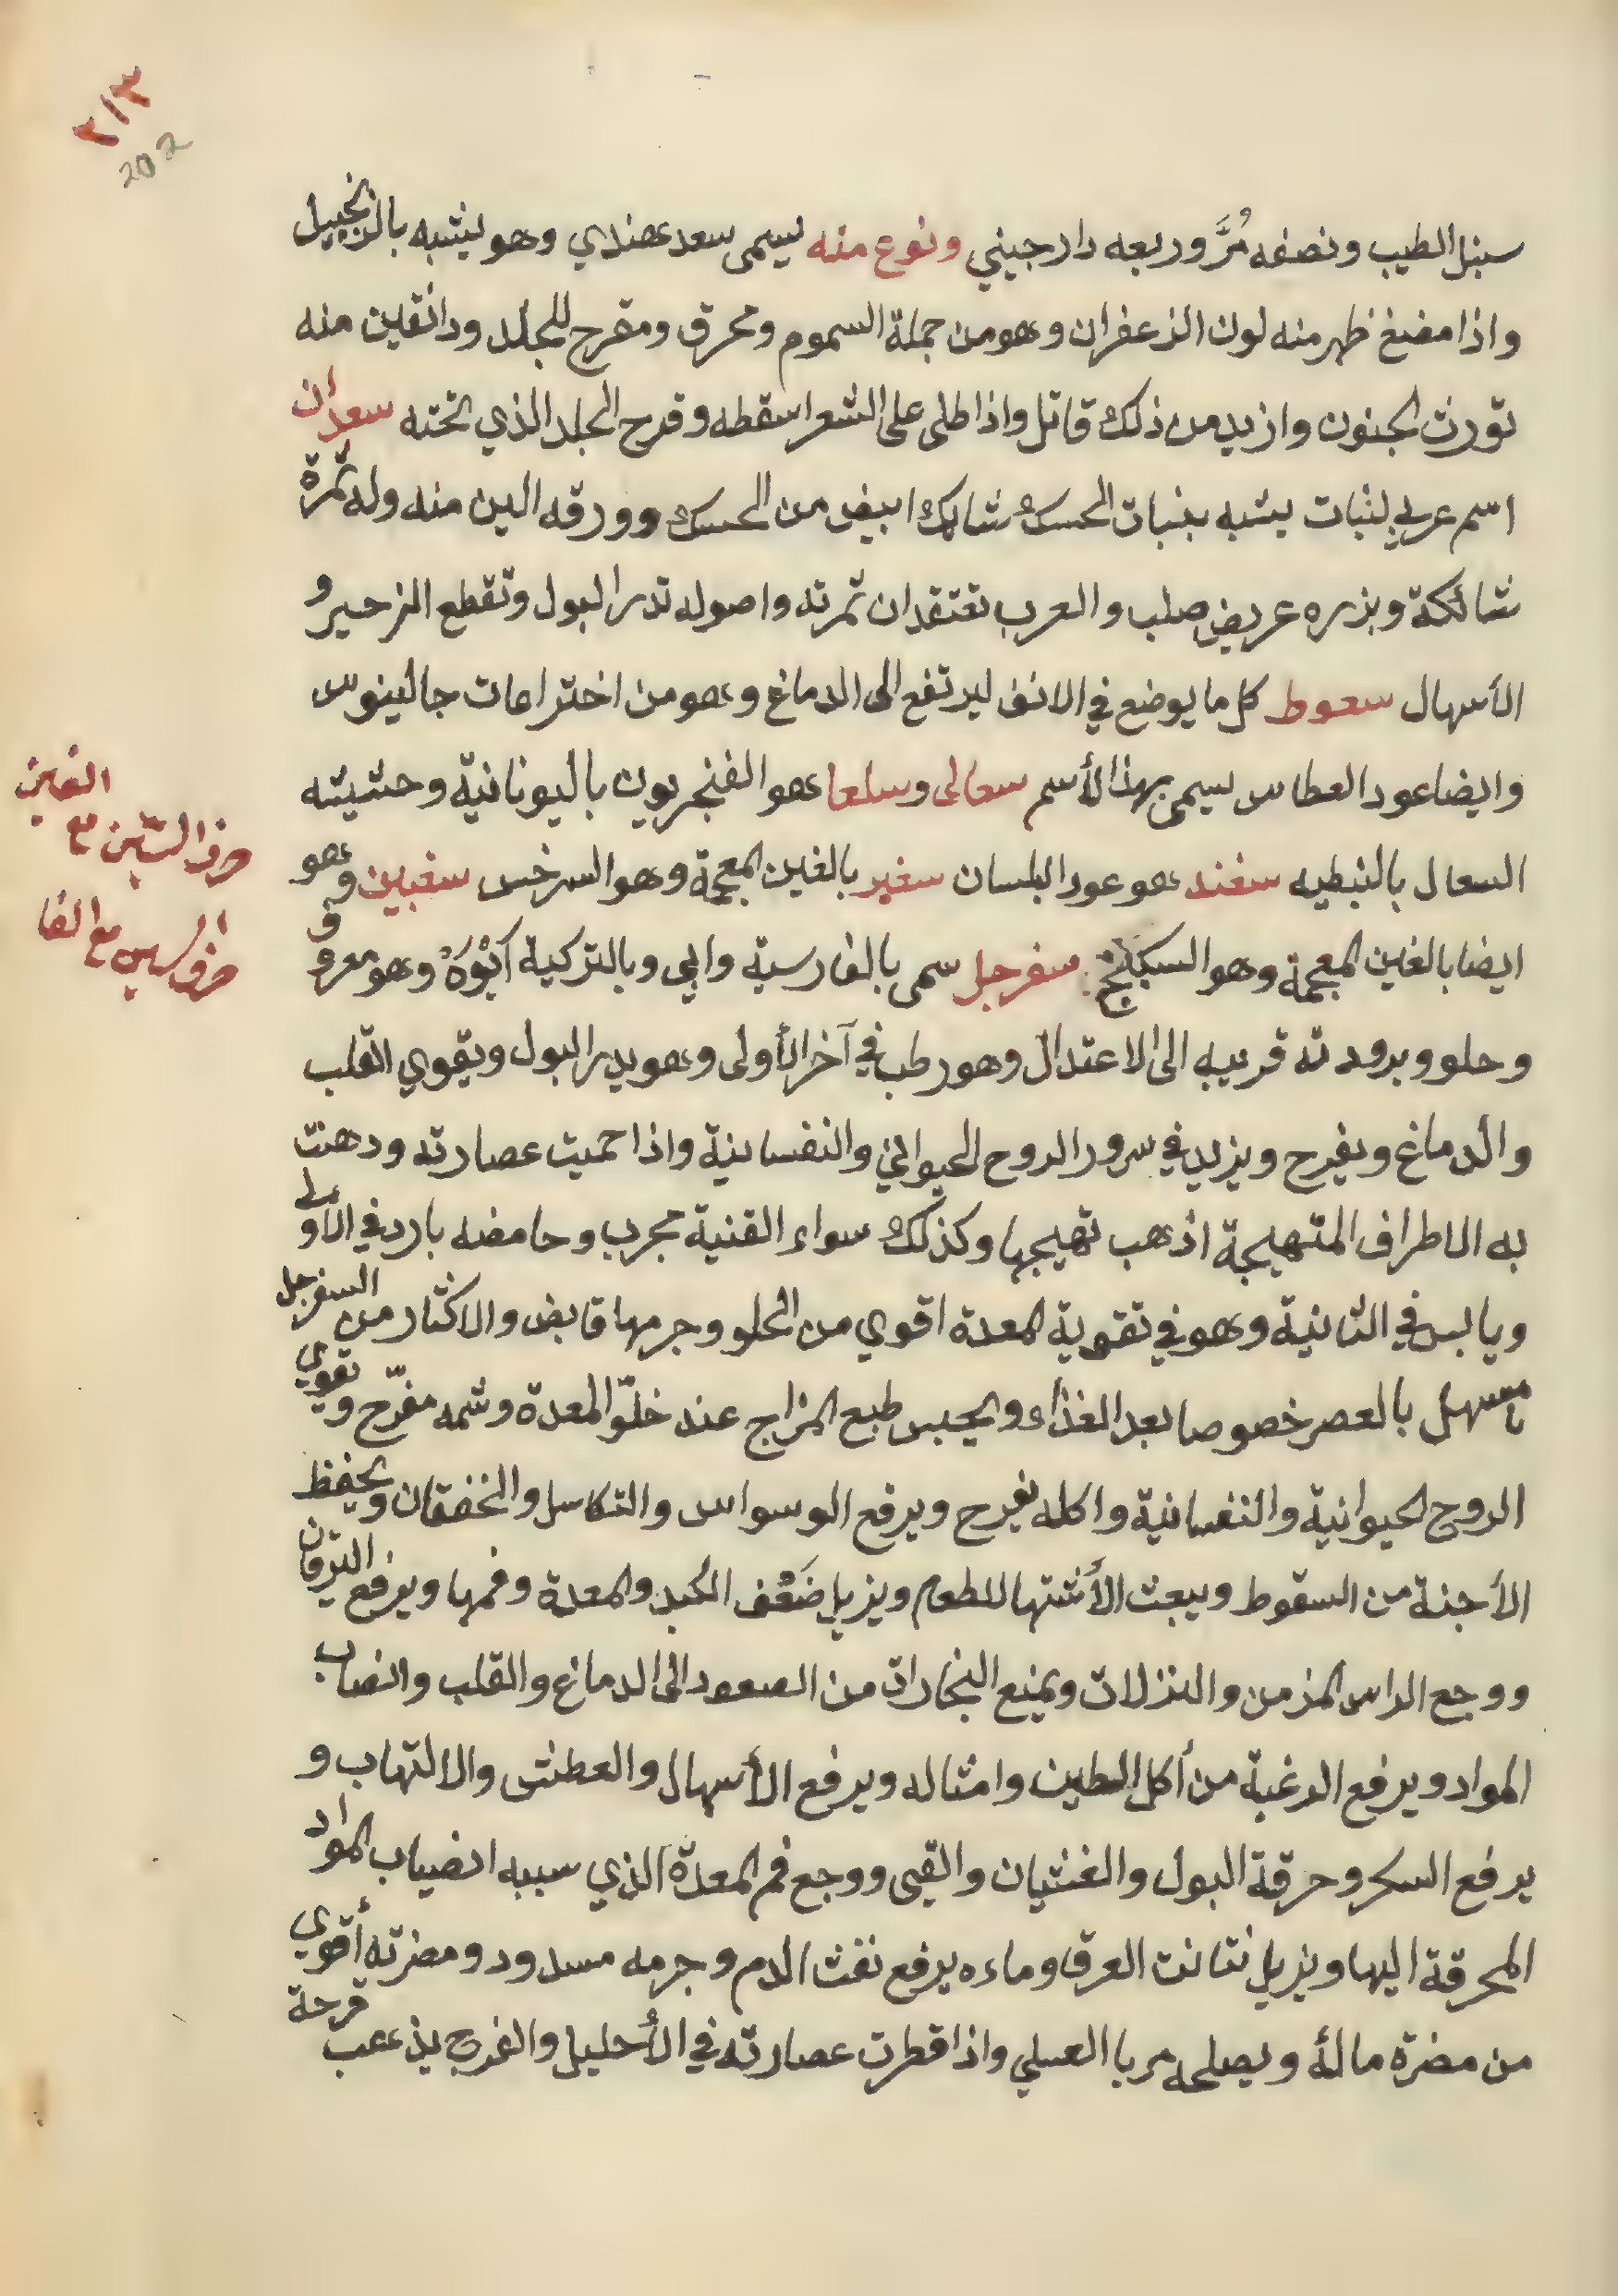 ٢١٣
202
سنبل الطيب ونصفه مُرَّ وربعه دارجيني ونوع منه يسمى سعد هندي وهو يشبه بالزنجبيل
واذا مضغ ظهر منه لون الزعفران وهو من جملة السموم ومحرق ومقرح للجلد ودانقين منه
تورث الجنون وازيد من ذلك قاتل واذا طلى على الشعر اسقطه وقرح الجلد الذي تحته سعدان
اسم عربي لنبات يشبه بنبات الحسك شائك ابيض من الحسك وورقه الين منه وله ثمرة
شائكة وبزره عريض صلب والعرب تعتقد ان ثمرته واصوله تدر البول وتقطع الزحير و
الأسهال سعوط كل ما يوضع في الانف ليرتفع الى الدماغ وهو من اختراعات جالينوس
وايضا عود العطاس يسمى بهذا الأسم سعالى وسلعا هو الفنجريون باليونانية وحشيشه
السعال بالنبطيه سغند هو عود البلسان سغبر بالغين المعجمة وهو السرخس سغبين وهو
ايضا بالغين المعجمة وهو السكبينج سفرجل سمى بالفارسية وابي وبالتركية آيْوَهْ وهو معروف
وحلو وبرودته قريبه الى الاعتدال وهو رطب في آخر الأولى وهو يدر البول ويقوي القلب
والدماغ ويفرح ويزيد في سرور الروح الحيواني والنفسانية واذا حميت عصارته ودهنت
به الاطراف المتهيجة اذهب تهيجها وكذلك سواء القنية مجرب وحامضه بارد في الأولى
ويابس في الثانية وهو في تقوية المعدة اقوي من الحلو وجرمها قابض والاكثار من السفرجل
مسهل بالعصر خصوصا بعد الغذاء ويحبس طبع المزاج عند خلوّ المعدة وشمه مفرّح وتقوي
الروح الحيوانية والنفسانية واكله يفرح ويرفع الوسواس والتكاسل والخفقان ويحفظ
الأجنة من السقوط ويبعث الأشتها للطعام ويزيل ضَعْف الكبد والمعدة وفمها ويرفع اليرقان
ووجع الراس المزمن والنزلات ويمنع البخارات من الصعود الى الدماغ والقلب وانصاب
المواد ويرفع الرغبة من أكل الطين وامثاله ويرفع الأسهال والعطش والالتهاب و
يرفع السكر وحرقة البول والغثيان والقيى ووجع فم المعدة الذي سببه انصياب المواد
المحرقة اليها ويزيل نتانت العرق وماءه يرفع نفث الدم وجرمه مسدود ومضرته أقوي
من مضرة مائه ويصلحه مربا العسلي واذا قطرت عصارته في الأحليل والفرج يذهب قرحة
حرف السّين مع الغين
حرف السين مع الفا